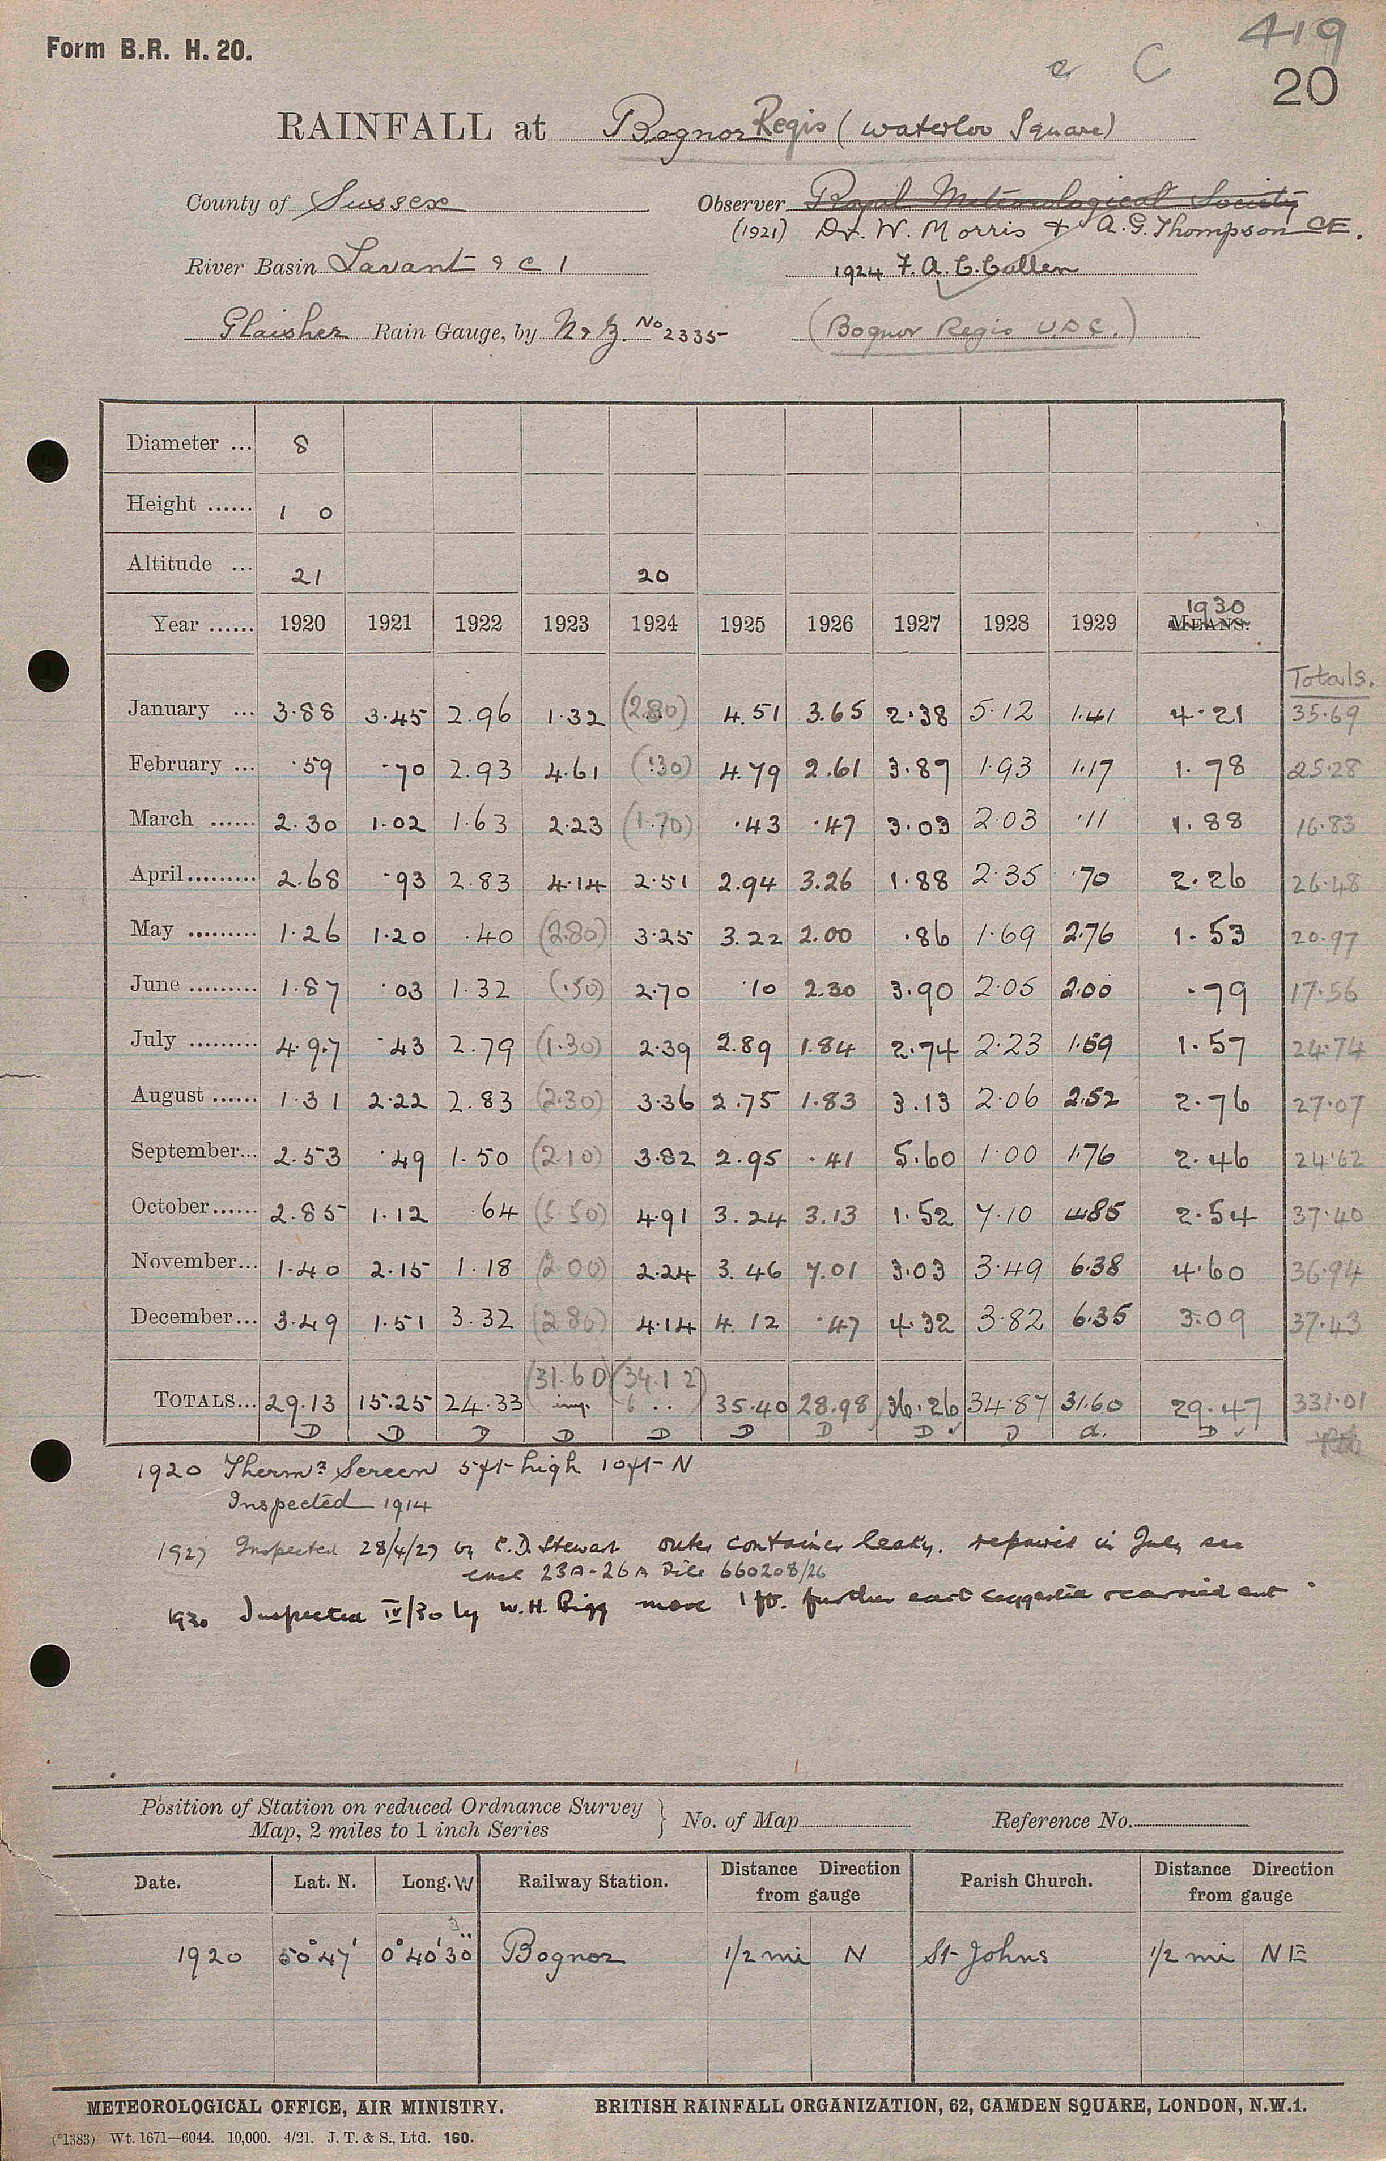 Form B.R. H. 20.
419
C
20
RAINFALL at Bognor Regis (Waterloo Square)
County of Sussex
Observer Royal Meteorological Society
(1921) Dr. W. Morris & A. G. Thompson CE.
River Basin Lavant & C 1
1924 F. A. C. Cullen
Glaisher Rain Gauge, by N & Z. No 2335
(Bognor Regis U.D.C.)
Diameter ... 8
Height ...... 1 0
Altitude ... 21 20
Year ...... 1920 1921 1922 1923 1924 1925 1926 1927 1928 1929 MEANS. 1930
Totals.
January ... 3.88 3.45 2.96 1.32 (2.80) 4.51 3.65 2.38 5.12 1.41 4.21 35.69
February ... .59 .70 2.93 4.61 (.30) 4.79 2.61 3.87 1.93 1.17 1.78 25.28
March ...... 2.30 1.02 1.63 2.23 (1.70) .43 .47 3.03 2.03 .11 1.88 16.83
April......... 2.68 .93 2.83 4.14 2.51 2.94 3.26 1.88 2.35 .70 2.26 26.48
May ......... 1.26 1.20 .40 (2.80) 3.25 3.22 2.00 .86 1.69 2.76 1.53 20.97
June ......... 1.87 .03 1.32 (.50) 2.70 .10 2.30 3.90 2.05 2.00 .79 17.56
July ......... 4.97 .43 2.79 (1.30) 2.39 2.89 1.84 2.74 2.23 1.59 1.57 24.74
August ...... 1.31 2.22 2.83 (2.30) 3.36 2.75 1.83 3.13 2.06 2.52 2.76 27.07
September... 2.53 .49 1.50 (2.10) 3.82 2.95 .41 5.60 1.00 1.76 2.46 24.62
October...... 2.85 1.12 .64 (5.50) 4.91 3.24 3.13 1.52 7.10 4.85 2.54 37.40
November... 1.40 2.15 1.18 (2.00) 2.24 3.46 7.01 3.03 3.49 6.38 4.60 36.94
December... 3.49 1.51 3.32 (2.80) 4.14 4.12 .47 4.32 3.82 6.35 3.09 37.43
(31.60) (34.12)
TOTALS... 29.13 15.25 24.33 imp. 6 .. 35.40 28.98 36.26 34.87 31.60 29.47 331.01
D D D D D D D D D d. D
1920 Thermr Screen 5ft high 10ft N
Inspected 1914
1927 Inspected 28/4/27 by C.D. Stewart outer container leaky. repaired in July see
case 23A-26A File 660208/26
1930 Inspected IV/30 by W.H. Bigg move 1 ft. further east suggested & carried out
Position of Station on reduced Ordnance Survey
Map, 2 miles to 1 inch Series
No. of Map
Reference No.
Date. Lat. N. Long. W Railway Station. Distance Direction from gauge Parish Church. Distance Direction from gauge
1920 50°47' 0°40'30" Bognor 1/2 mi N St Johns 1/2 mi NE
METEOROLOGICAL OFFICE, AIR MINISTRY. BRITISH RAINFALL ORGANIZATION, 62, CAMDEN SQUARE, LONDON, N.W.1.
(*1383) Wt. 1671—6044. 10,000. 4/21. J. T. & S., Ltd. 160.